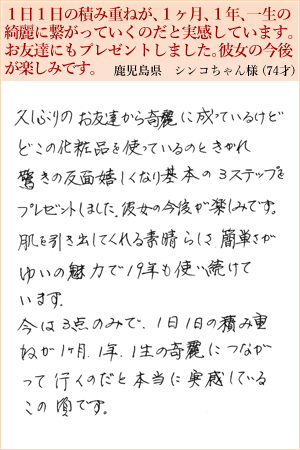 １日１日の積み重ねが、１ヶ月、１年、一生の
綺麗に繋がっていくのだと実感しています。
お友達にもプレゼントしました。彼女の今後
が楽しみです。　鹿児島県　シンコちゃん様（74才）
久しぶりのお友達から奇麗に成っているけど
どこの化粧品を使っているのときかれ
驚きの反面嬉しくなり基本の3ステップを
プレゼントしました。彼女の今後が楽しみです。
肌を引き出してくれる素晴らしさ 簡単さが
ゆいの魅力で19年も使い続けて
います。
今は3点のみで、1日1日の積み重
ねが1ヶ月、1年、1生の奇麗につなが
って行くのだと本当に実感している
この頃です。